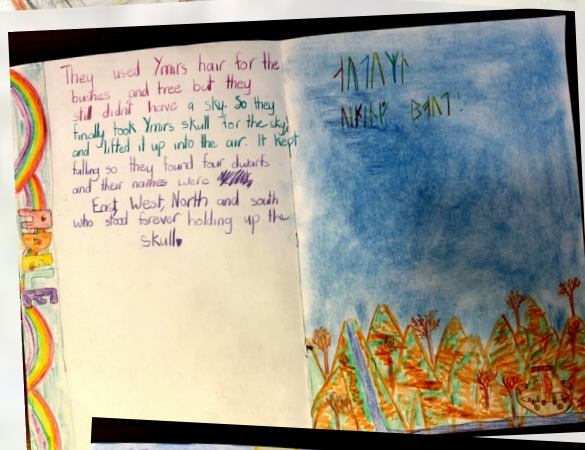 They used Ymirs hair for the
bushes and tree but they
still didn't have a sky. So they
finally took Ymirs skull for the sky
and lifted it up into the air. It kept
falling so they found four dwarfs
and their names were
East, West, North and south
who stood forever holding up the
skull
ADELE